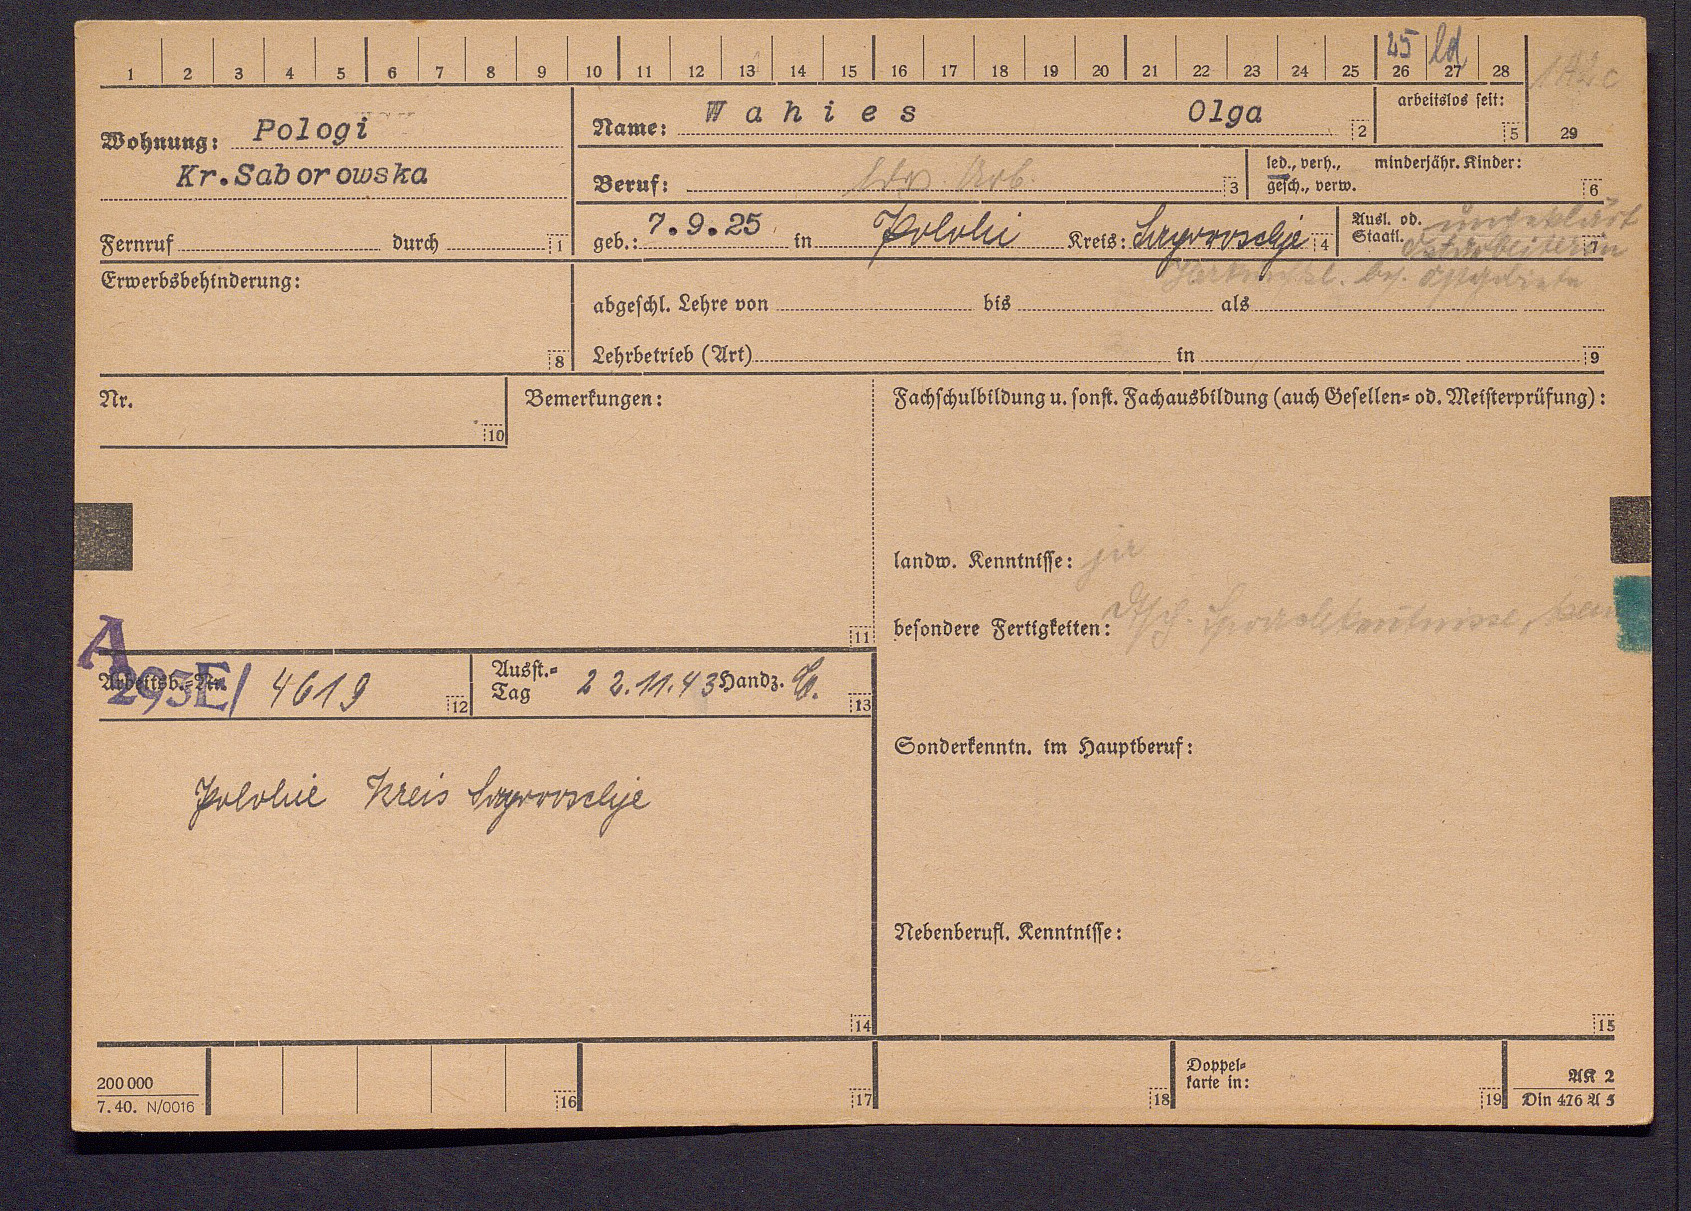 25 ld
1 2 3 4 5 6 7 8 9 10 11 12 13 14 15 16 17 18 19 20 21 22 23 24 25 26 27 28
Wohnung: Pologi
Kr.Saborowska
Fernruf durch 1
Name: Wahies Olga 2
arbeitslos seit: 5
29
Beruf: ldw. Arb. 3
led., verh., minderjähr. Kinder:
gesch., verw. 6
geb.: 7.9.25 in Polohi Kreis: Saporoschje 4
Ausl. od. ungeklärt
Staatl. Ostarbeiterin 7
Erwerbsbehinderung:
8
abgeschl. Lehre von bis als
Lehrbetrieb (Art) in 9
Nr.
10
Bemerkungen:
11
Fachschulbildung u. sonst. Fachausbildung (auch Gesellen- od. Meisterprüfung):
landw. Kenntnisse: ja
besondere Fertigkeiten: Dtsch. Sprachkentnisse,
A
293E/
Arbeitsb.-Nr. 4619 12
Ausst.-
Tag 22.11.43 Handz. 13
Polohie Kreis Saporoschje
14
Sonderkenntn. im Hauptberuf:
Nebenberufl. Kenntnisse:
15
200 000
7. 40. N/0016
16
17
18
Doppel-
karte in:
19
AK 2
Din 476 A 5